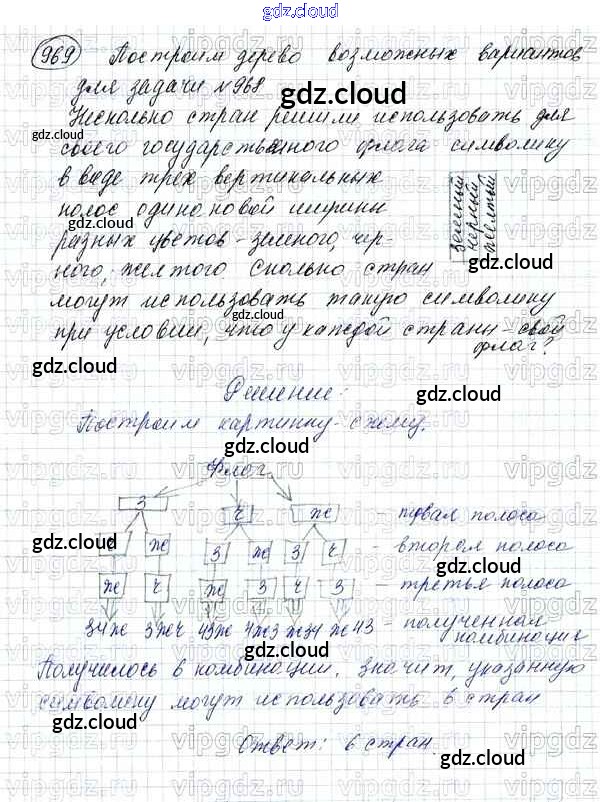 gdz.cloud
969 Построим дерево возможных вариантов
для задачи №968
Несколько стран решили использовать для
своего государственного флага символику
в виде трех вертикальных
полос одинаковой ширины
разных цветов - зеленого, чер-
ного, желтого Сколько стран
могут использовать такую символику
при условии, что у каждой страны - свой
флаг?
зеленый
черный
желтый
Решение:
Построим картинку-схему.
Флаг
З Ч Ж - первая полоса
Ч Ж З Ж З Ч - вторая полоса
Ж Ч Ж З Ч З - третья полоса
ЗЧЖ ЗЖЧ ЧЗЖ ЧЖЗ ЖЗЧ ЖЧЗ - полученная
комбинация
Получилось 6 комбинации. Значит, указанную
символику могут использовать 6 стран
Ответ: 6 стран.
gdz.cloud
vipgdz.ru